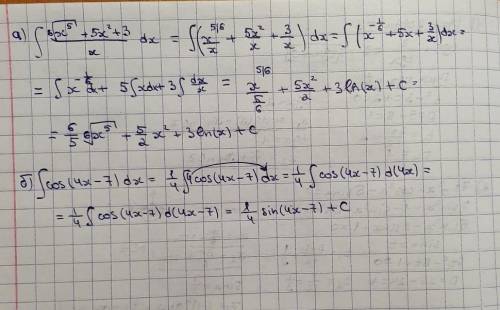 а) ∫ (⁶√x⁵ + 5x² + 3)/x dx = ∫(x^{5/6}/x + 5x²/x + 3/x) dx = ∫(x^{-1/6} + 5x + 3/x)dx =
= ∫ x^{-1/6} dx + 5∫xdx + 3∫dx/x = x^{5/6}/(5/6) + 5x²/2 + 3ln(x) + C =
= 6/5 ⁶√x⁵ + 5/2 x² + 3ln(x) + C
б) ∫cos(4x-7) dx = 1/4 ∫4cos(4x-7) dx = 1/4 ∫cos(4x-7) d(4x) =
= 1/4 ∫cos(4x-7) d(4x-7) = 1/4 sin(4x-7) + C